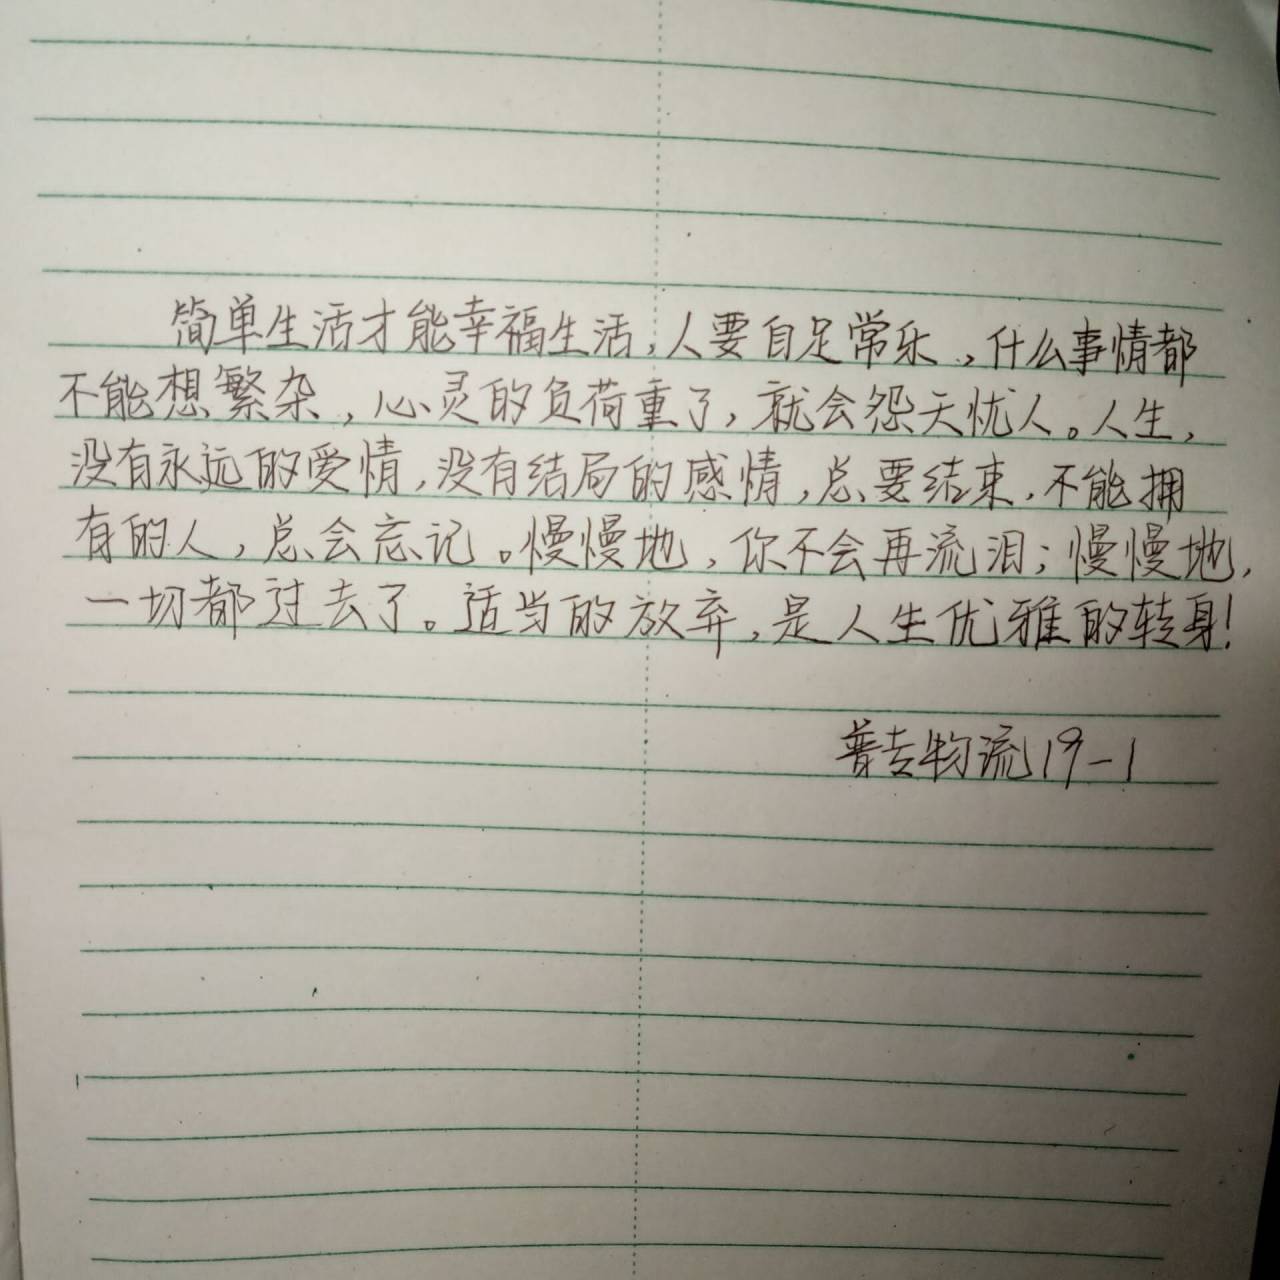 简单生活才能幸福生活,人要自足常乐.,什么事情都
不能想繁杂,心灵的负荷重了,就会怨天忧人。人生,
没有永远的爱情,没有结局的感情,总要结束,不能拥
有的人,总会忘记。慢慢地,你不会再流泪;慢慢地,
一切都过去了。适当的放弃,是人生优雅的转身!
普专物流19-1